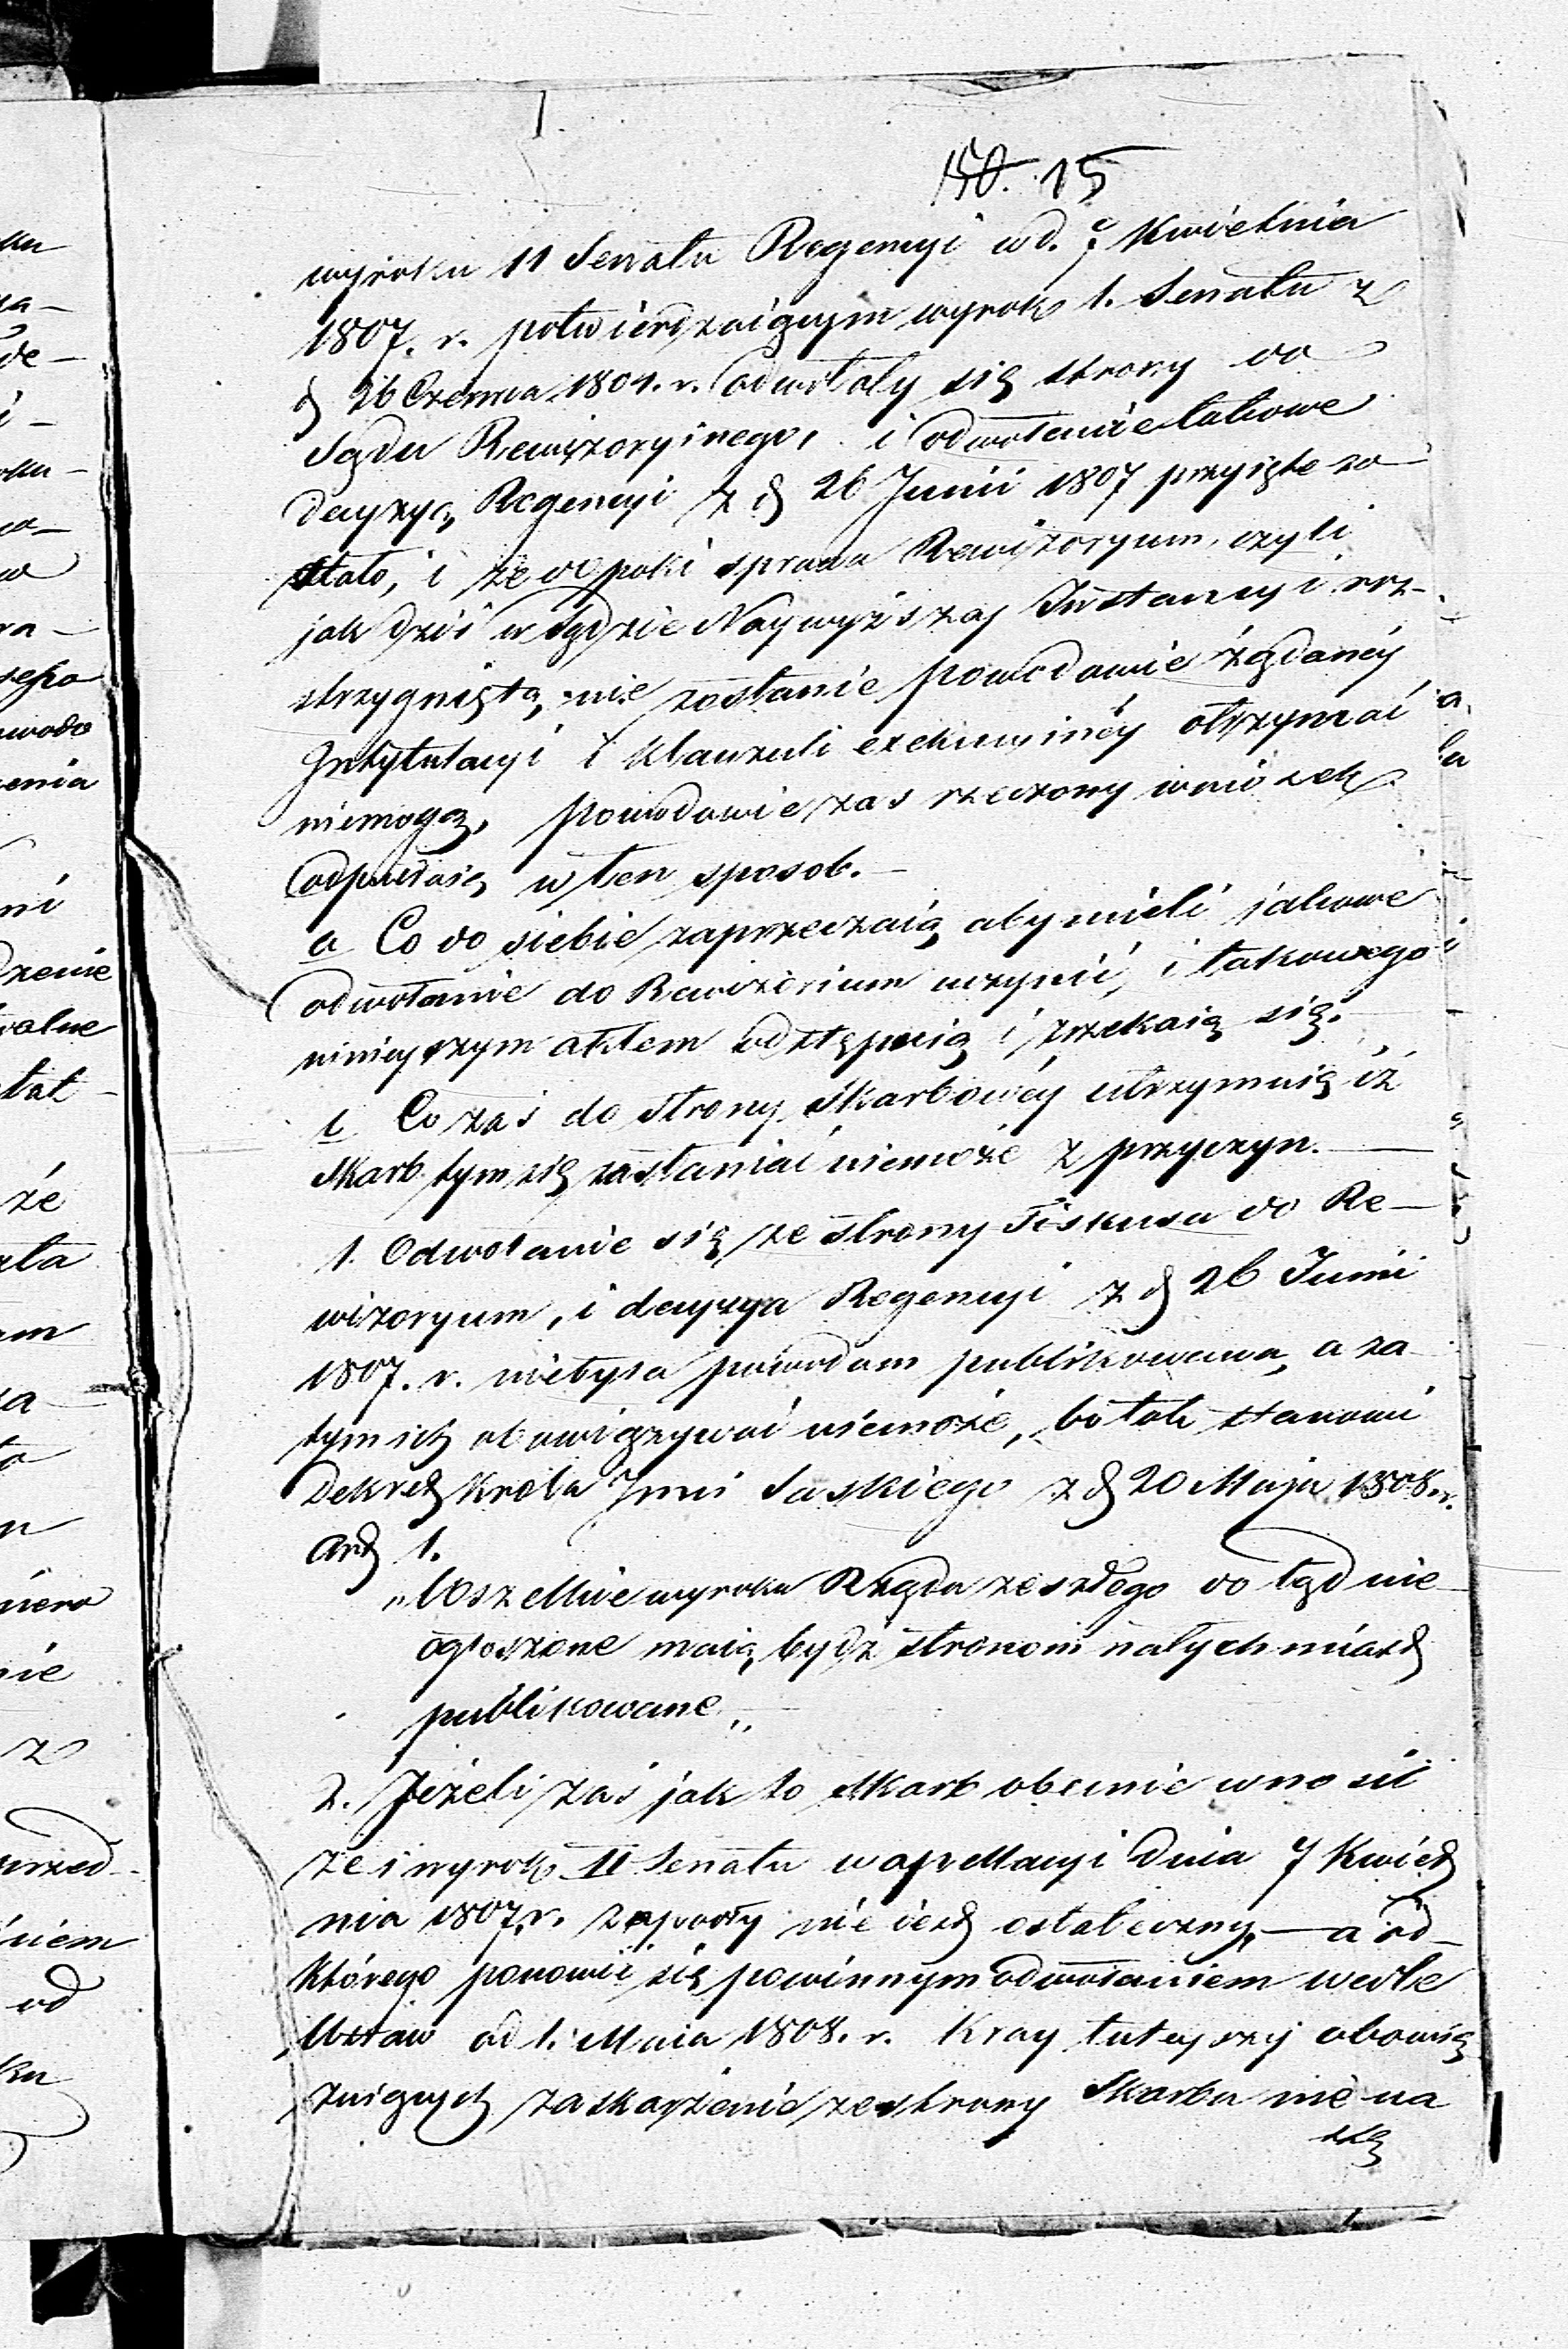 150. 15
wyroku II Senatu Regencyi w d. 7 Kwietnia
1807. r. potwierdzaiącym wyrok 1. Senatu z
d 26 Czerwca 1804. r. odwołały się strony do
Sądu Rewizoryinego, i odwołanie takowe
decyzyą Regencyi z d 26 Junii 1807 przyięte zo
stało, i że dopoki sprawa Rewizoryum, czyli
jak dziś w Sądzie Naywyższey Instancyi roz-
strzygniętą nie zostanie powodowie żądaney
Intytulacyi i klauzuli exekucyiney otrzymać
niemogą, powodowie zas rzeczony wniosek
odpieraią w ten sposob.—
a Co do siebie zaprzeczaią aby mieli jakowe
odwołanie do Rewizorium uczynić, i takowego
ninieyszym aktem odstępuią i zrzekaią się.
c Co zaś do strony Skarbowey utrzymuią iż
Skarb tym się zasłaniać niemoże z przyczyn.—
1. Odwołanie się ze strony Fiskusa do Re—
wizoryum, i decyzya Regencyi z d 26 Junii
1807. r. niebyła powodom publikowana, a za
tym ich obowiązywać niemoże, bo tak stanowi
Dekret Krola Jmci Saskiego z d 20 Maja 1808. r.
Art 1.
„Wszelkie wyroku Rządu zeszłego do tąd nie
ogłoszone maią bydź stronom natychmiast
publikowane„
2. Jeżeli zaś jak to Skarb obecnie wnosił
że i wyrok II Senatu w apellacyi dnia 7 Kwiet
nia 1807 r. zapadły nie iest ostateczny,— a od—
którego ponowić się powinnym odwołaniem wedle
Ustaw od 1. Maia 1808. r. Kray tuteyszy obowią
zuiących zaskarżenie ze strony Skarbu nie na
stą